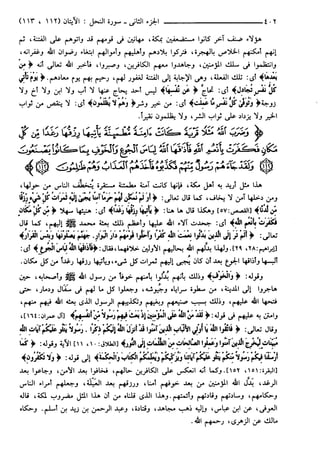 ٤٠٢ الجزء الثاني - سورة النحل: الآيتان (١١٢، ١١٣)
هؤلاء صنف آخر كانوا مستضعفين بمكة، مهانين في قومهم قد واتوهم على الفتنة، ثم
إنهم أمكنهم الخلاص بالهجرة، فتركوا بلادهم وأهليهم وأموالهم ابتغاء رضوان الله وغفرانه،
وانتظموا في سلك المؤمنين، وجاهدوا معهم الكافرين، وصبروا، فأخبر الله تعالى أنه ﴿مِنْ
بَعْدِهَا﴾ أي: تلك الفعلة، وهي الإجابة إلى الفتنة لغفور لهم، رحيم بهم يوم معادهم. ﴿يَوْمَ تَأْتِي
كُلُّ نَفْسٍ تُجَادِلُ﴾ أي: تحاج ﴿عَنْ نَفْسِهَا﴾ ليس أحد يحاج عنها لا أب ولا ابن ولا أخ ولا
زوجة ﴿وَتُوَفَّى كُلُّ نَفْسٍ مَا عَمِلَتْ﴾ أي: من خير وشر ﴿وَهُمْ لَا يُظْلَمُونَ﴾ أي: لا ينقص من ثواب
الخير ولا يزداد على ثواب الشر، ولا يظلمون نقيراً.
وَضَرَبَ اللَّهُ مَثَلًا قَرْيَةً كَانَتْ آمِنَةً مُطْمَئِنَّةً يَأْتِيهَا رِزْقُهَا رَغَدًا مِنْ كُلِّ
مَكَانٍ فَكَفَرَتْ بِأَنْعُمِ اللَّهِ فَأَذَاقَهَا اللَّهُ لِبَاسَ الْجُوعِ وَالْخَوْفِ بِمَا كَانُوا يَصْنَعُونَ
وَلَقَدْ جَاءَهُمْ رَسُولٌ مِنْهُمْ فَكَذَّبُوهُ فَأَخَذَهُمُ الْعَذَابُ وَهُمْ ظَالِمُونَ
هذا مثل أريد به أهل مكة، فإنها كانت آمنة مطمئنة مستقرة يُتخطَّف الناس من حولها،
ومن دخلها آمن لا يخاف، كما قال تعالى: ﴿أَوَلَمْ نُمَكِّنْ لَهُمْ حَرَمًا آمِنًا يُجْبَى إِلَيْهِ ثَمَرَاتُ كُلِّ شَيْءٍ رِزْقًا
مِنْ لَدُنَّا﴾ [القصص: ٥٧] وهكذا قال هنا: ﴿يَأْتِيهَا رِزْقُهَا رَغَدًا﴾ أي: هنيئها سهلا ﴿مِنْ كُلِّ مَكَانٍ
فَكَفَرَتْ بِأَنْعُمِ اللَّهِ﴾ أي: جحدت آلاء الله عليها وأعظم ذلك بعثة محمد ﷺ إليهم، كما قال
تعالى: ﴿أَلَمْ تَرَ إِلَى الَّذِينَ بَدَّلُوا نِعْمَتَ اللَّهِ كُفْرًا وَأَحَلُّوا قَوْمَهُمْ دَارَ الْبَوَارِ جَهَنَّمَ يَصْلَوْنَهَا وَبِئْسَ الْقَرَارُ﴾
[إبراهيم: ٢٨، ٢٩]. ولهذا بدلهم الله بحاليهم الأولين خلافهما، فقال: ﴿فَأَذَاقَهَا اللَّهُ لِبَاسَ الْجُوعِ﴾ أي:
ألبسها وأذاقها الجوع بعد أن كان يُجبى إليهم ثمرات كل شيء، ويأتيها رزقها رغدا من كل مكان.
وقوله: ﴿وَالْخَوْفِ﴾ وذلك بأنهم بُدلوا بأمنهم خوفاً من رسول الله ﷺ وأصحابه، حين
هاجروا إلى المدينة، من سطوة سراياه وجيوشه، وجعلوا كل ما لهم في سفال ودمار، حتى
فتحها الله عليهم، وذلك بسبب صنيعهم وبغيهم وتكذيبهم الرسول الذي بعثه الله فيهم منهم،
وامتن به عليهم في قوله: ﴿لَقَدْ مَنَّ اللَّهُ عَلَى الْمُؤْمِنِينَ إِذْ بَعَثَ فِيهِمْ رَسُولًا مِنْ أَنْفُسِهِمْ﴾ [آل عمران: ١٦٤]،
وقال تعالى: ﴿فَاتَّقُوا اللَّهَ يَا أُولِي الْأَلْبَابِ الَّذِينَ آمَنُوا قَدْ أَنْزَلَ اللَّهُ إِلَيْكُمْ ذِكْرًا . رَسُولًا يَتْلُو عَلَيْكُمْ آيَاتِ اللَّهِ
مُبَيِّنَاتٍ لِيُخْرِجَ الَّذِينَ آمَنُوا وَعَمِلُوا الصَّالِحَاتِ مِنَ الظُّلُمَاتِ إِلَى النُّورِ﴾ [الطلاق: ١٠، ١١] الآية وقوله: ﴿كَمَا
أَرْسَلْنَا فِيكُمْ رَسُولًا مِنْكُمْ يَتْلُو عَلَيْكُمْ آيَاتِنَا وَيُزَكِّيكُمْ وَيُعَلِّمُكُمُ الْكِتَابَ وَالْحِكْمَةَ﴾ إلى قوله: ﴿وَلَا تَكْفُرُونِ﴾
[البقرة: ١٥١، ١٥٢]. وكما أنه انعكس على الكافرين حالهم، فخافوا بعد الأمن، وجاعوا بعد
الرغد، بدَّل الله المؤمنين من بعد خوفهم أمنا، ورزقهم بعد العَيْلة، وجعلهم أمراء الناس
وحكامهم، وسادتهم وقادتهم وأئمتهم. وهذا الذي قلناه من أن هذا المثل مضروب لمكة، قاله
العوفي، عن ابن عباس، وإليه ذهب مجاهد، وقتادة، وعبد الرحمن بن زيد بن أسلم. وحكاه
مالك عن الزهري، رحمهم الله.